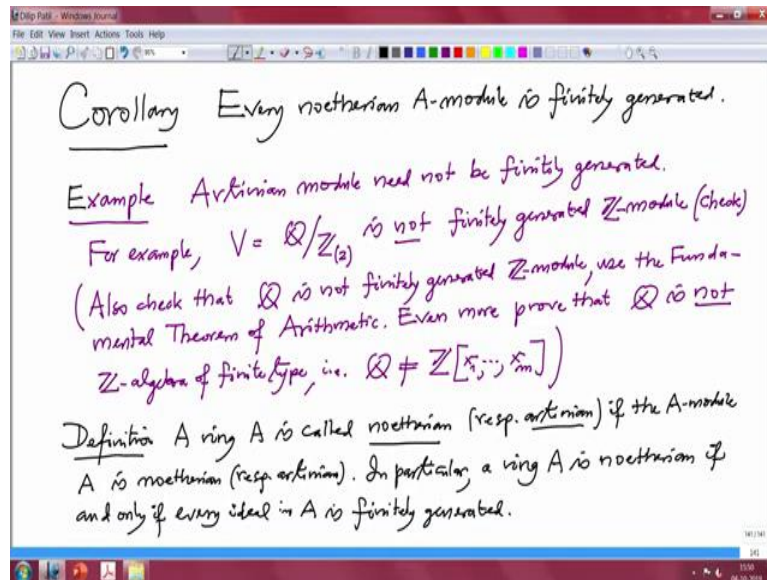 Dilip Patil - Windows Journal
File Edit View Insert Actions Tools Help
Corollary Every noetherian A-module is finitely generated.
Example Artinian module need not be finitely generated.
For example, V = ℚ/ℤ₍₂₎ is not finitely generated ℤ-module (check)
(Also check that ℚ is not finitely generated ℤ-module, use the Funda-
mental Theorem of Arithmetic. Even more prove that ℚ is not
ℤ-algebra of finite type, i.e. ℚ ≠ ℤ[x₁,...,xₘ])
Definition A ring A is called noetherian (resp. artinian) if the A-module
A is noetherian (resp. artinian). In particular, a ring A is noetherian if
and only if every ideal in A is finitely generated.
141/141
141
15:50